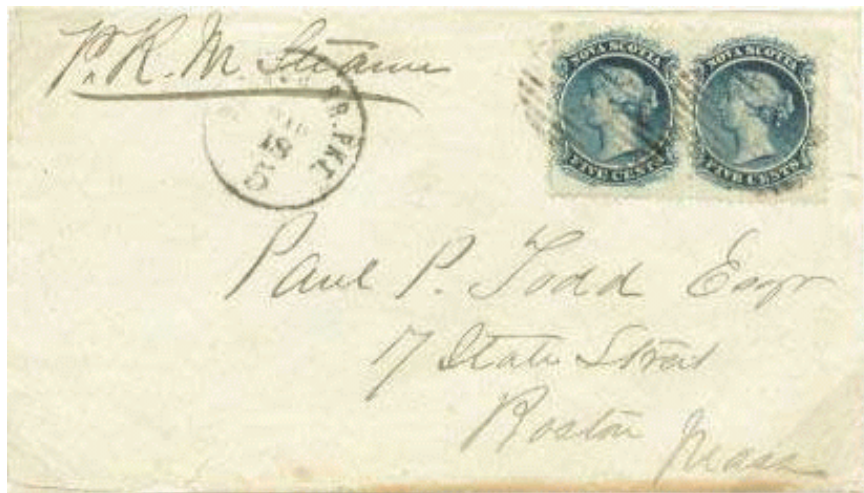 P. R. M Steamer
NOVA SCOTIA
FIVE CENTS
NOVA SCOTIA
FIVE CENTS
BR. PKT.
Paul P. Todd Esqr
17 State Street
Boston
Mass